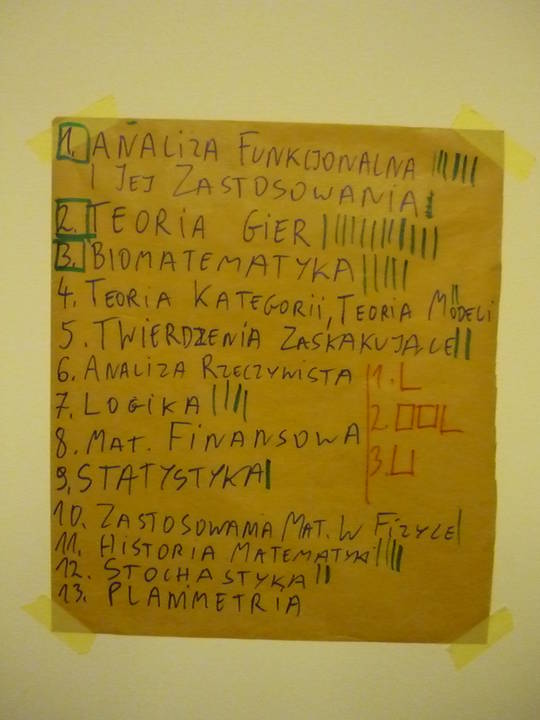 1. ANALIZA FUNKCJONALNA
I JEJ ZASTOSOWANIA
2. TEORIA GIER
3. BIOMATEMATYKA
4. TEORIA KATEGORII, TEORIA MODELI
5. TWIERDZENIA ZASKAKUJĄCE
6. ANALIZA RZECZYWISTA
7. LOGIKA
8. MAT. FINANSOWA
9. STATYSTYKA
10. ZASTOSOWANIA MAT. W FIZYCE
11. HISTORIA MATEMATYKI
12. STOCHASTYKA
13. PLANIMETRIA
1.
2.
3.